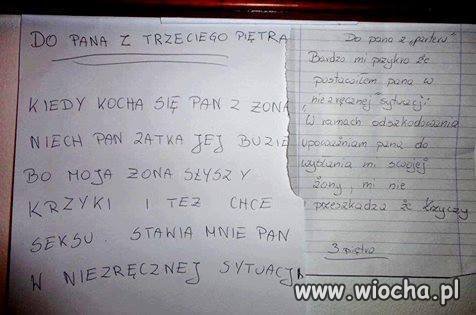 DO PANA Z TRZECIEGO PIĘTRA
KIEDY KOCHA SIĘ PAN Z ŻONĄ
NIECH PAN ZATKA JEJ BUZIE
BO MOJA ŻONA SŁYSZY
KRZYKI I TEŻ CHCE
SEKSU. STAWIA MNIE PAN
W NIEZRĘCZNEJ SYTUACJI
Do pana z "parteru"
Bardzo mi przykro że
postawiłem pana w
"niezręcznej" sytuacji.
W ramach odszkodowania
upoważniam pana do
wysłania mi swojej
żony, mi nie
przeszkadza że krzyczy
3 piętro
www.wiocha.pl